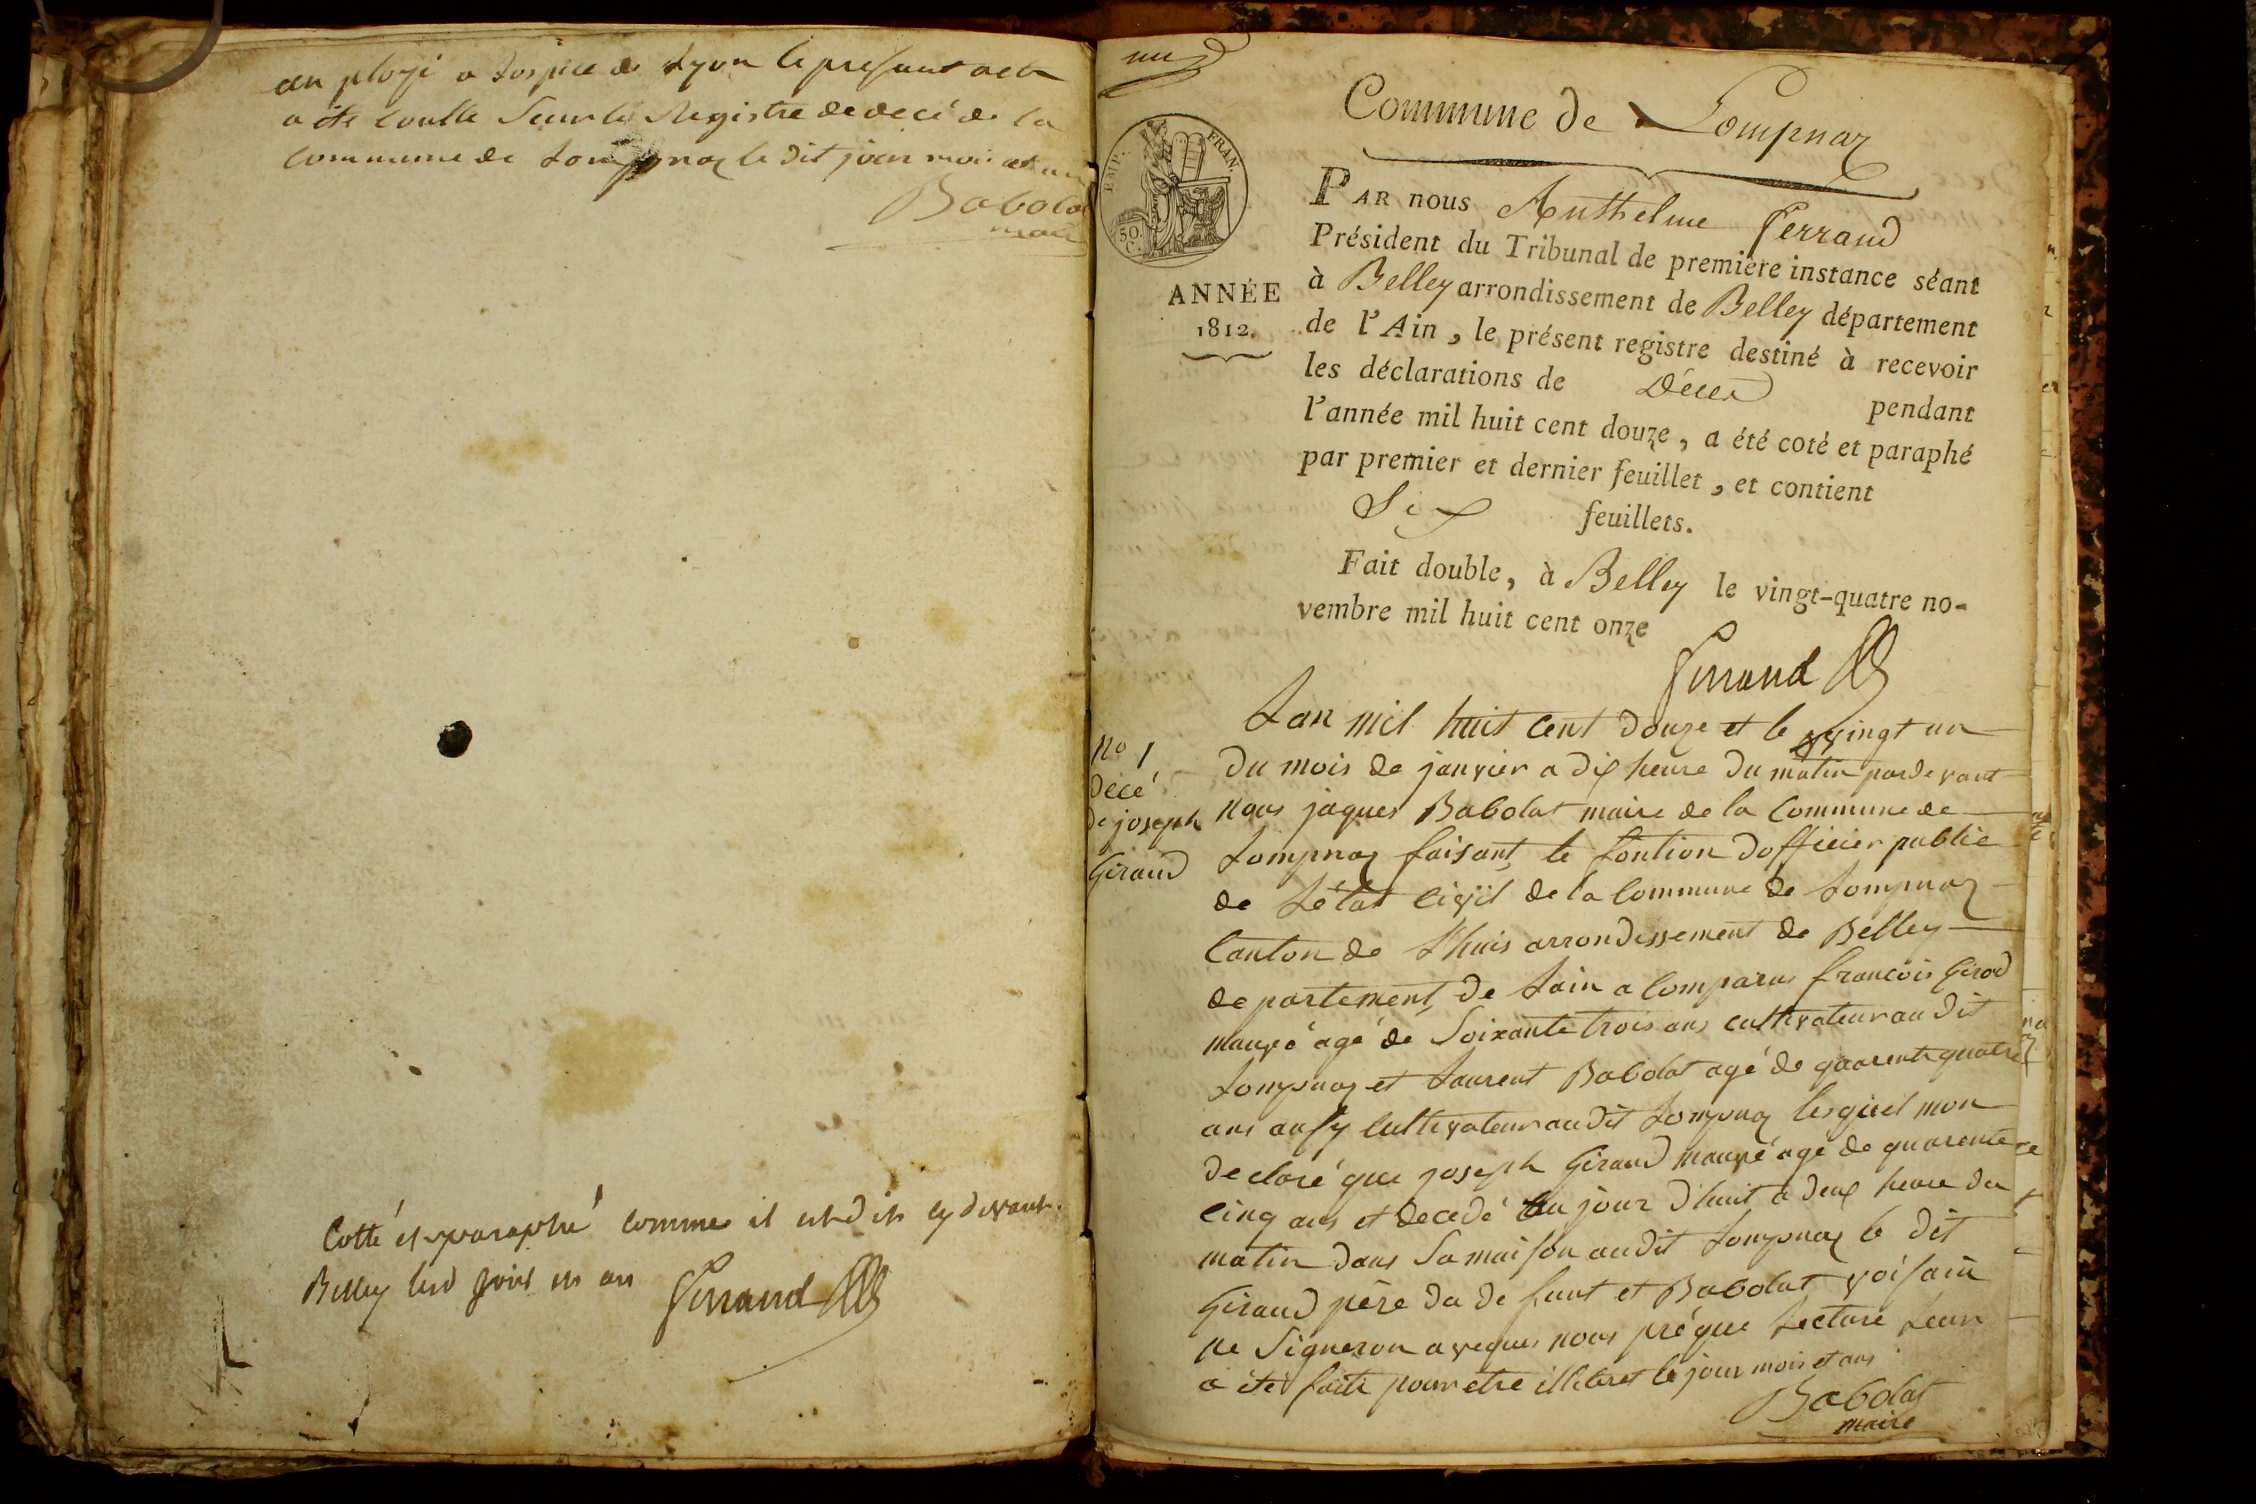 an ployé a hospice de Lyon le presant acte
a été coulle Seur le Registre de decé de la
commune de Lompnaz le dit jour mois et an
Babolat
maire
Cotté et paraphé comme il est dit cy devant.
Belley lesd jour et an Ferrand
un
Commune de Lompnaz
EMP. FRAN.
50. C.
ANNÉE
1812.
PAR nous Anthelme Ferrand
Président du Tribunal de première instance séant
à Belley arrondissement de Belley département
de l'Ain, le présent registre destiné à recevoir
les déclarations de Décès pendant
l'année mil huit cent douze, a été coté et paraphé
par premier et dernier feuillet, et contient
Six feuillets.
Fait double, à Belley le vingt-quatre no-
vembre mil huit cent onze
Ferrand
No 1
Décé
de joseph
Giraud
Lan mil huit cent Douze et le vingt un
Du mois de janvier a dix heure Du matin pardevant
nous jaques Babolat maire de la Commune de
Lompnaz faisant le fontion Dofficier public
de Létat Civil de la Commune de Lompnaz
Canton de Lhuis arrondissement de Belley
departement De Lain a Comparus francois Girod
mauvé agé de Soixante trois ans cultivateur au Dit
Lompnaz et Laurent Babolat agé de quarente quatre
ans ausy Cultivateur au Dit Lompnaz lesquel mon
Declaré que joseph Giraud mauvé agé de quarente
Cinq ans et decedé au jour D'huit a deux heure du
matin dans Sa maison au dit Lompnaz le dit
Giraud père du de funt et Babolat voisain
ne Signeron aveques nous préque Lecture Leur
a été faite pour etre illiteret le jour mois et ans
Babolat
maire